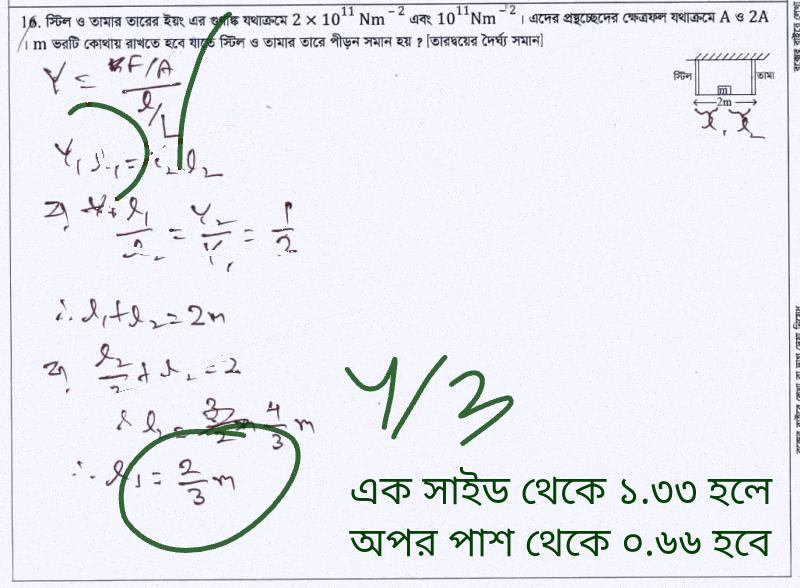 16. স্টিল ও তামার তারের ইয়ং এর গুণাঙ্ক যথাক্রমে 2 × 10^11 Nm^-2 এবং 10^11 Nm^-2 । এদের প্রস্থচ্ছেদের ক্ষেত্রফল যথাক্রমে A ও 2A
। m ভরটি কোথায় রাখতে হবে যাতে স্টিল ও তামার তারে পীড়ন সমান হয় ? [তারদ্বয়ের দৈর্ঘ্য সমান]
স্টিল
তামা
m
2m
Y = F/A / l/L
l1/l2 = Y2/Y1 = 1/2
∴ l1+l2 = 2m
l2/2 + l2 = 2
l2 = 4/3 m
∴ l1 = 2/3 m
4/3
এক সাইড থেকে ১.৩৩ হলে
অপর পাশ থেকে ০.৬৬ হবে